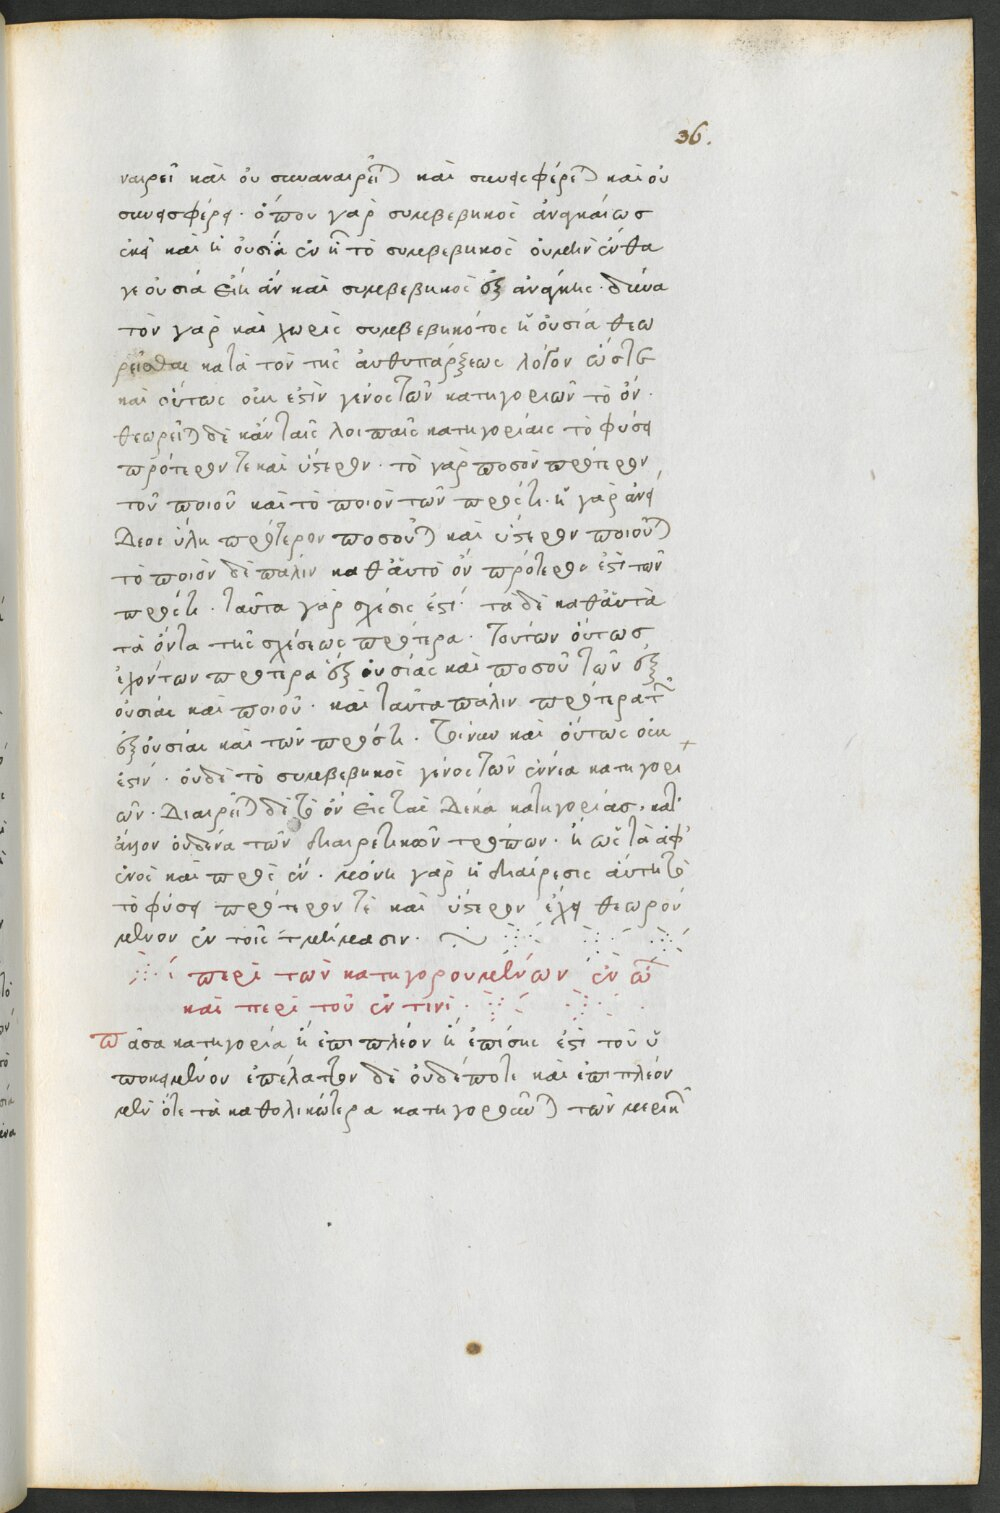 36.
ναιρεῖ καὶ οὐ συναναιρεῖται καὶ συνεισφέρεται καὶ οὐ
συνεισφέρει· ὅπου γὰρ συμβεβηκὸς ἀναγκαίως
ἐκεῖ καὶ ἡ οὐσία ἐν ᾗ τὸ συμβεβηκὸς οὐ μὴν ἔνθα
γε οὐσία εἴη ἂν καὶ συμβεβηκὸς ἐξ ἀνάγκης· δυνα
τὸν γὰρ καὶ χωρὶς συμβεβηκότος ἡ οὐσία θεω
ρεῖσθαι κατὰ τὸν τῆς ἀνθυπάρξεως λόγον ὥστε
καὶ οὕτως οὐκ ἐστὶν γένος τῶν κατηγοριῶν τὸ ὄν·
θεωρεῖται δὲ κἀν ταῖς λοιπαῖς κατηγορίαις τὸ φύσει
πρότερόν τε καὶ ὕστερον· τὸ γὰρ ποσὸν πρότερον
τοῦ ποιοῦ καὶ τὸ ποιὸν τῶν πρός τι· ἡ γὰρ ἀνεί
δεος ὕλη πρότερον ποσοῦται καὶ ὕστερον ποιοῦται
τὸ ποιὸν δὲ πάλιν καθ' αὑτὸ ὂν πρότερον ἐστὶ τῶν
πρός τι· ταῦτα γὰρ σχέσις ἐστί· τὰ δὲ καθ' αὑτὰ
τὰ ὄντα τῆς σχέσεως πρότερα· τούτων οὕτως
ἐχόντων πρότερα ἐξ οὐσίας καὶ ποσοῦ τῶν ἐξ
οὐσίας καὶ ποιοῦ· καὶ ταῦτα πάλιν πρότερα τῶν
ἐξ οὐσίας καὶ τῶν πρός τι· τοίνυν καὶ οὕτως οὐκ
ἐστίν· οὐδὲ τὸ συμβεβηκὸς γένος τῶν ἐννέα κατηγορι
ῶν· Διαιρεῖται δὲ τὸ ὂν εἰς τὰς δέκα κατηγορίας· κατ'
ἄλλον οὐδένα τῶν διαιρετικῶν τρόπων· ἢ ὡς τὰ ἀφ'
ἑνὸς καὶ πρὸς ἕν· μόνη γὰρ ἡ διαίρεσις αὕτη τὸ
τὸ φύσει πρότερόν τε καὶ ὕστερον ἔχει θεωρού
μενον ἐν τοῖς τμήμασιν·
περὶ τῶν κατηγορουμένων ἐν ᾧ
καὶ περὶ τοῦ ἐν τινί·
πᾶσα κατηγορία ἢ ἐπὶ πλέον ἢ ἐπίσης ἐστὶ τοῦ ὑ
ποκειμένου ἐπ' ἔλαττον δὲ οὐδέποτε καὶ ἐπὶ πλέον
μὲν ὅτε τὰ καθολικώτερα κατηγορῶνται τῶν μερικῶν